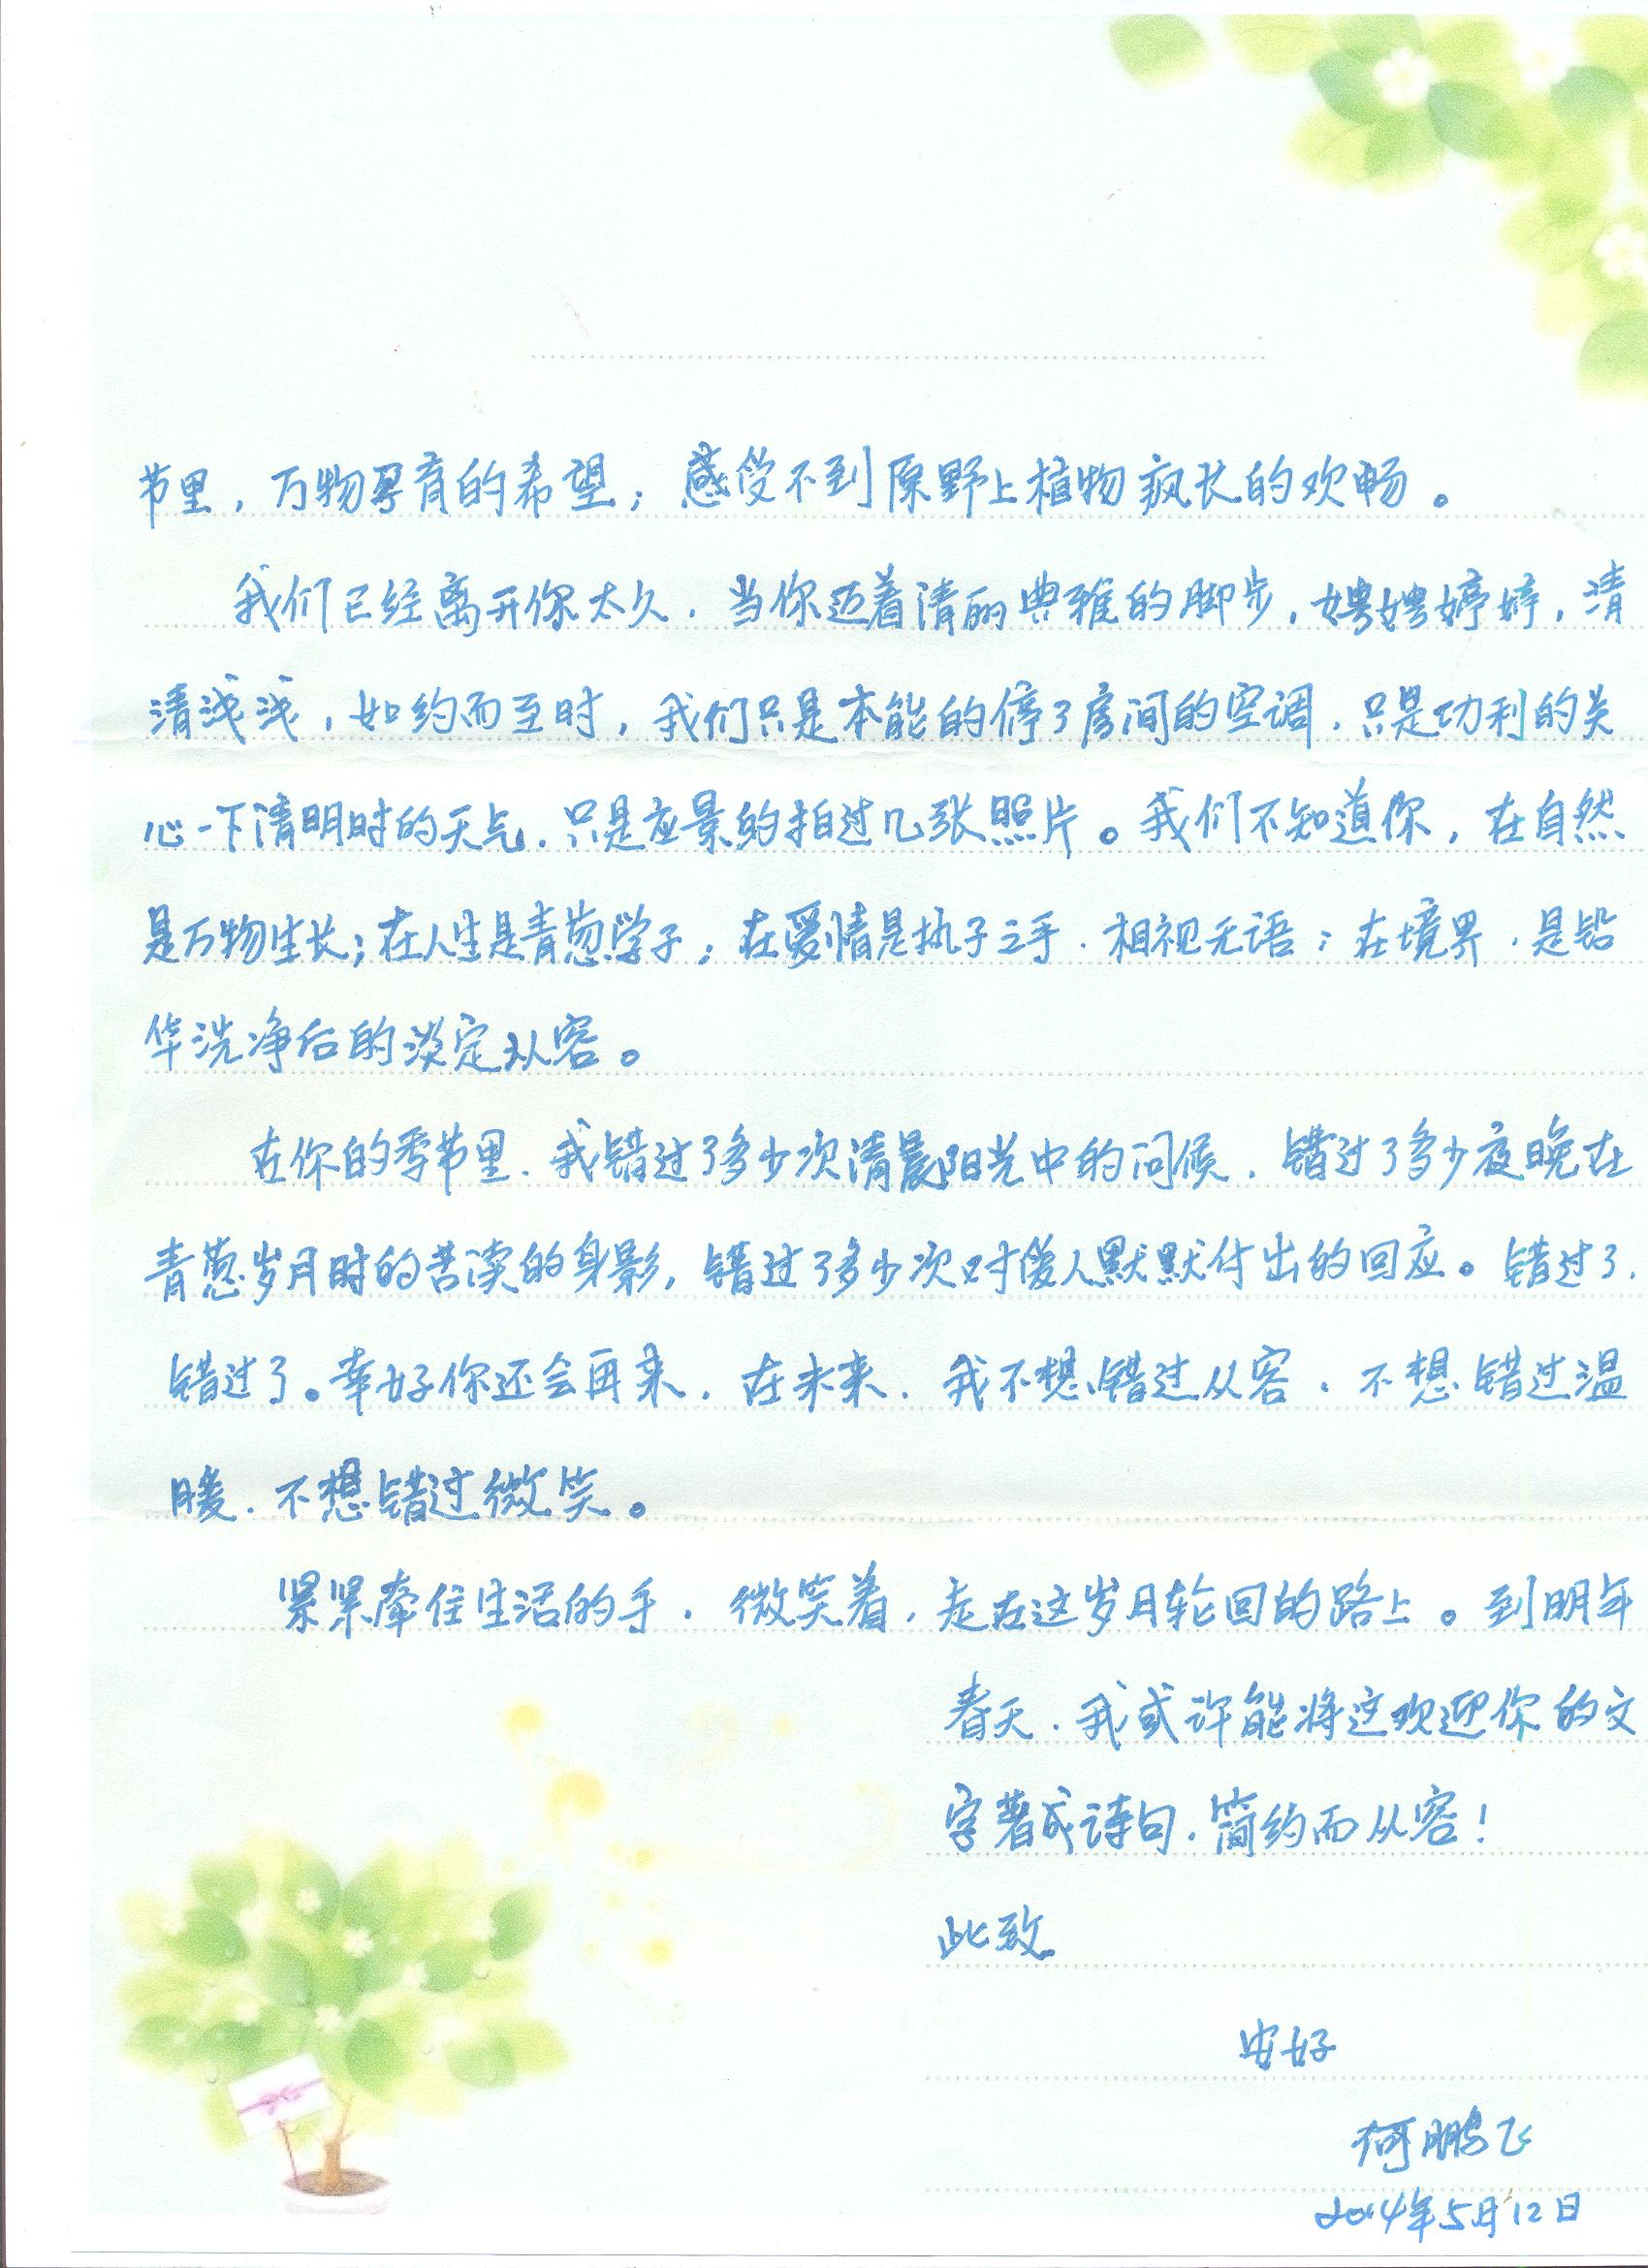 节里，万物孕育的希望；感受不到原野上植物疯长的欢畅。
我们已经离开你太久，当你迈着清丽典雅的脚步，娉娉婷婷，清
清浅浅，如约而至时，我们只是本能的停了房间的空调，只是功利的关
心一下清明时的天气，只是应景的拍过几张照片。我们不知道你，在自然
是万物生长；在人生是青葱学子；在爱情是执子之手，相视无语；在境界，是铅
华洗净后的淡定从容。
在你的季节里，我错过了多少次清晨阳光中的问候，错过了多少夜晚在
青葱岁月时的苦读的身影，错过了多少次对爱人默默付出的回应。错过了，
错过了。幸好你还会再来，在未来，我不想错过从容，不想错过温
暖，不想错过微笑。
紧紧牵住生活的手，微笑着，走在这岁月轮回的路上。到明年
春天，我或许能将这欢迎你的文
字著成诗句，简约而从容！
此致
安好
何鹏飞
2014年5月12日